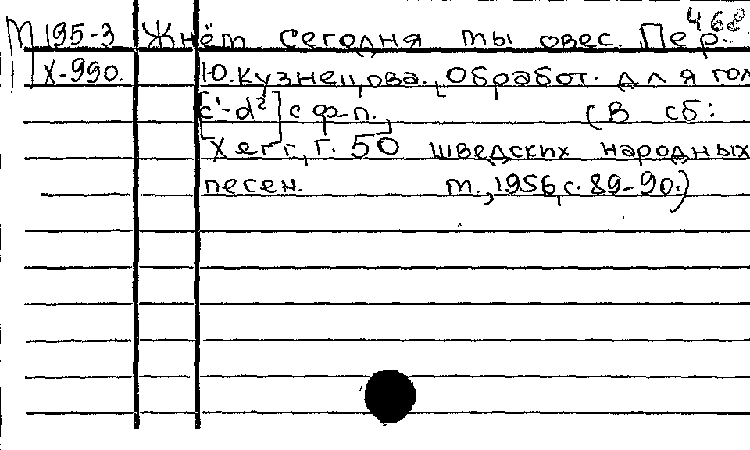 468
М 195-3 Жнём сегодня ты овес. Пер.
X-990. Ю.Кузнецова. [Обработ. для гол
[c'-d²] с ф-п.] (В сб:
Хегг, Г. 50 шведских народных
песен. М., 1956, с. 89-90.)